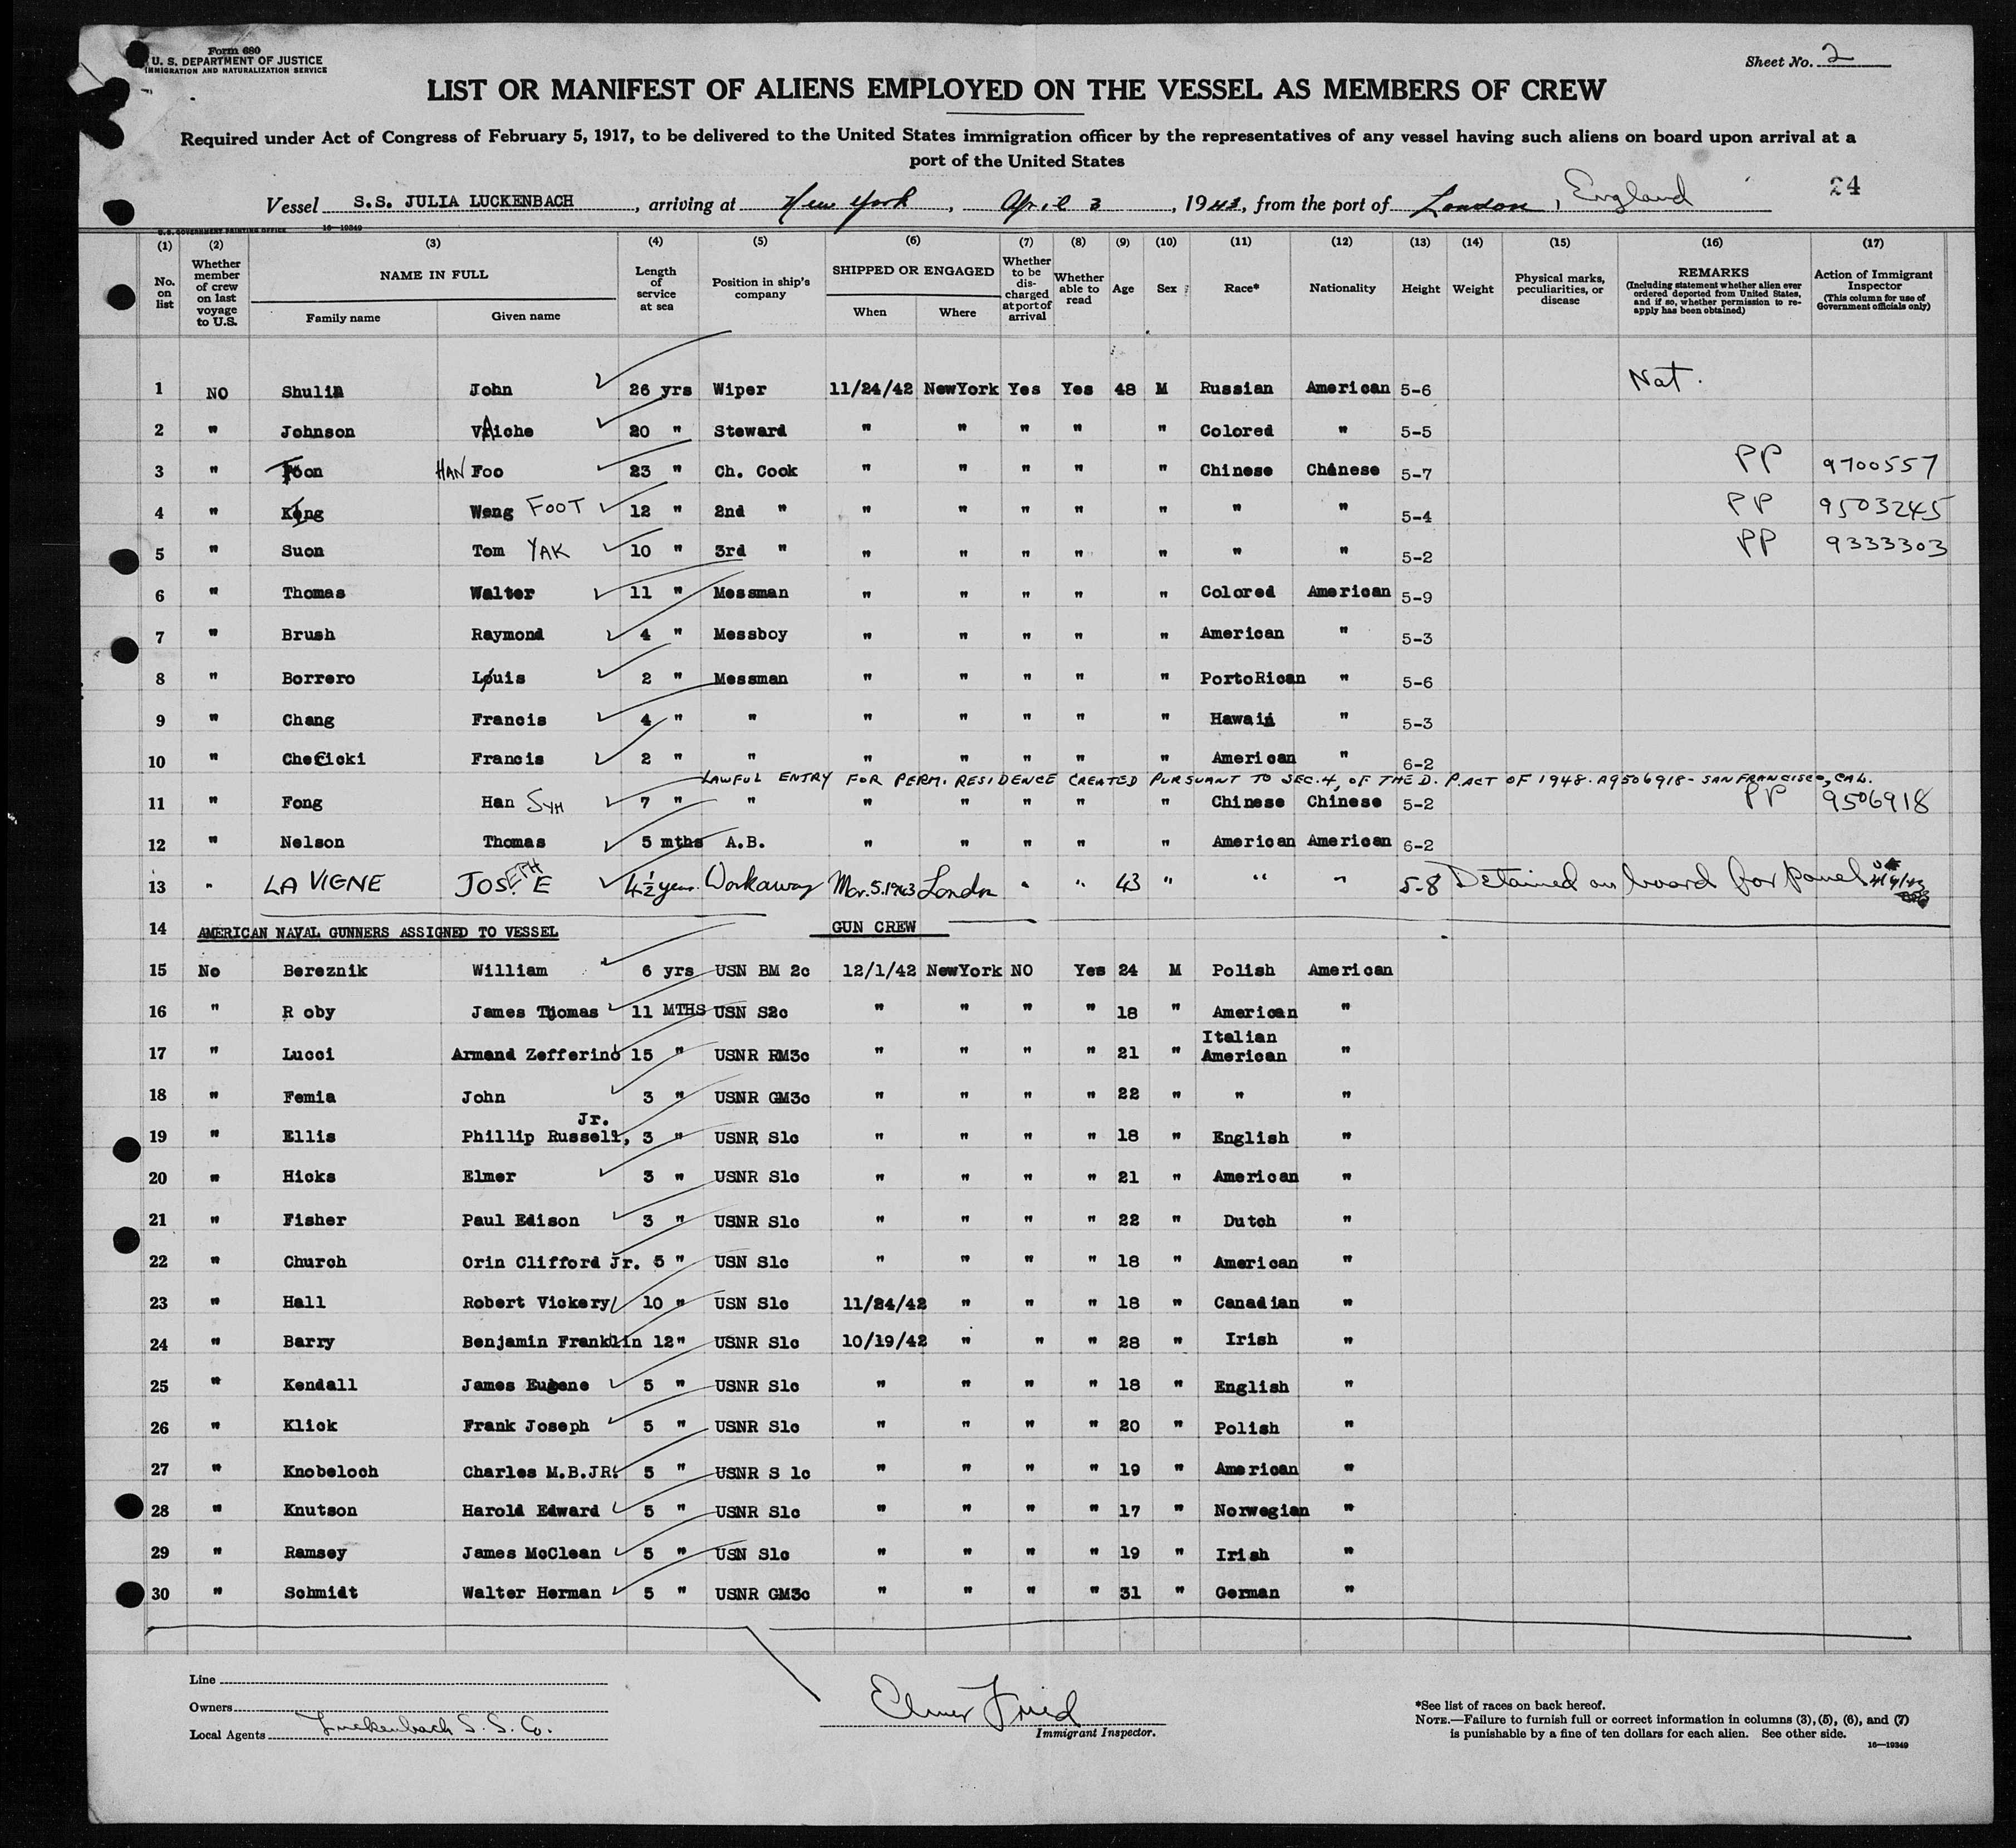 Form 680
U. S. DEPARTMENT OF JUSTICE
IMMIGRATION AND NATURALIZATION SERVICE
Sheet No. 2
LIST OR MANIFEST OF ALIENS EMPLOYED ON THE VESSEL AS MEMBERS OF CREW
Required under Act of Congress of February 5, 1917, to be delivered to the United States immigration officer by the representatives of any vessel having such aliens on board upon arrival at a
port of the United States
24
Vessel S.S. JULIA LUCKENBACH, arriving at New York, April 3, 1943, from the port of London, England
U.S. GOVERNMENT PRINTING OFFICE 16—19349
(1) (2) (3) (4) (5) (6) (7) (8) (9) (10) (11) (12) (13) (14) (15) (16) (17)
No. on list
Whether member of crew on last voyage to U.S.
NAME IN FULL
Family name Given name
Length of service at sea
Position in ship's company
SHIPPED OR ENGAGED
When Where
Whether to be discharged at port of arrival
Whether able to read
Age
Sex
Race*
Nationality
Height
Weight
Physical marks, peculiarities, or disease
REMARKS
(Including statement whether alien ever ordered deported from United States, and if so, whether permission to reapply has been obtained)
Action of Immigrant Inspector
(This column for use of Government officials only)
1 NO Shulin John 26 yrs Wiper 11/24/42 NewYork Yes Yes 48 M Russian American 5-6 Nat.
2 " Johnson VAiche 20 " Steward " " " " " Colored " 5-5
3 " Toon HAN Foo 23 " Ch. Cook " " " " " Chinese Chinese 5-7 PP 9700557
4 " Kong Weng FOOT 12 " 2nd " " " " " " " " 5-4 PP 9503245
5 " Suon Tom YAK 10 " 3rd " " " " " " " " 5-2 PP 9333303
6 " Thomas Walter 11 " Messman " " " " " Colored American 5-9
7 " Brush Raymond 4 " Messboy " " " " " American " 5-3
8 " Borrero Louis 2 " Messman " " " " " PortoRican " 5-6
9 " Chang Francis 4 " " " " " " " Hawaii " 5-3
10 " Cheficki Francis 2 " " " " " " " American " 6-2
LAWFUL ENTRY FOR PERM. RESIDENCE CREATED PURSUANT TO SEC. 4, OF THE D. P. ACT OF 1948. A9506918 - SAN FRANCISCO, CAL.
11 " Fong Han SYH 7 " " " " " " " Chinese Chinese 5-2 PP 9506918
12 " Nelson Thomas 5 mths A.B. " " " " " American American 6-2
13 " LA VIGNE JOSEPH E 4½ years Workaway Mar. 5. 1943 London " " 43 " " " 5-8 Detained on board for panel 4/4/43
14 AMERICAN NAVAL GUNNERS ASSIGNED TO VESSEL GUN CREW
15 No Bereznik William 6 yrs USN BM 2c 12/1/42 NewYork NO Yes 24 M Polish American
16 " Roby James Thomas 11 MTHS USN S2c " " " " 18 " American "
17 " Lucci Armand Zefferino 15 " USNR RM3c " " " " 21 " Italian American "
18 " Femia John 3 " USNR GM3c " " " " 22 " " "
19 " Ellis Phillip Russell, Jr. 3 " USNR S1c " " " " 18 " English "
20 " Hicks Elmer 3 " USNR S1c " " " " 21 " American "
21 " Fisher Paul Edison 3 " USNR S1c " " " " 22 " Dutch "
22 " Church Orin Clifford Jr. 5 " USN S1c " " " " 18 " American "
23 " Hall Robert Vickery 10 " USN S1c 11/24/42 " " " 18 " Canadian "
24 " Barry Benjamin Franklin 12 " USNR S1c 10/19/42 " " " 28 " Irish "
25 " Kendall James Eugene 5 " USNR S1c " " " " 18 " English "
26 " Klick Frank Joseph 5 " USNR S1c " " " " 20 " Polish "
27 " Knobeloch Charles M.B.JR. 5 " USNR S 1c " " " " 19 " American "
28 " Knutson Harold Edward 5 " USNR S1c " " " " 17 " Norwegian "
29 " Ramsey James McClean 5 " USN S1c " " " " 19 " Irish "
30 " Schmidt Walter Herman 5 " USNR GM3c " " " " 31 " German "
Line
Owners
Local Agents Luckenbach S. S. Co.
Elmer Fried
Immigrant Inspector.
*See list of races on back hereof.
NOTE.—Failure to furnish full or correct information in columns (3), (5), (6), and (7)
is punishable by a fine of ten dollars for each alien. See other side.
16—19349